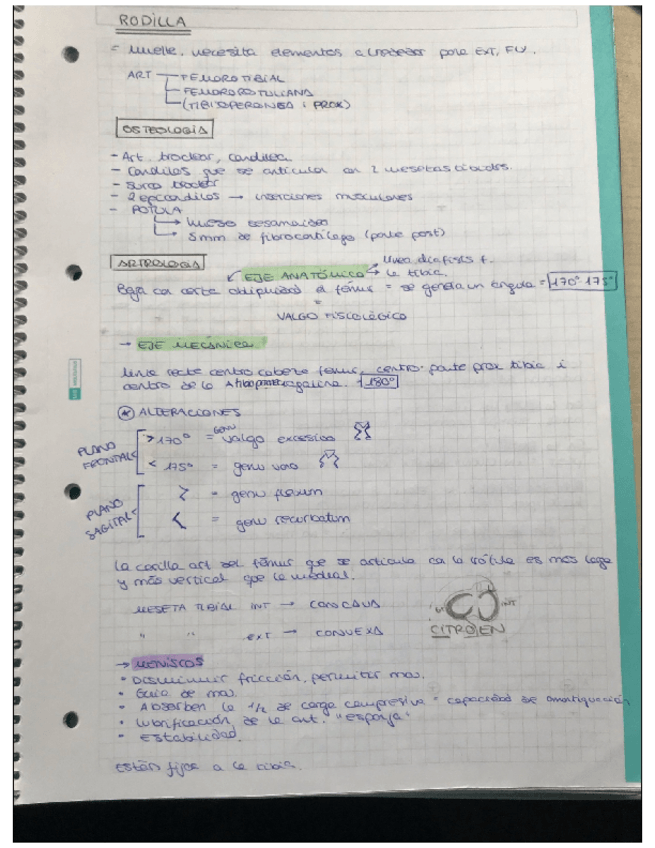 RODILLA
= Muelle, necesita elementos alrededor para EXT, FLX.
ART FEMOROTIBIAL
FEMOROROTULIANA
(TIBIOPERONEA i PROX)
OSTEOLOGÍA
- Art. troclear, condilea.
- Condilos que se articulan con 2 mesetas tibiales.
- Surco troclear
- 2 epicondilos → inserciones musculares
- ROTULA
→ Hueso sesamoideo
→ 5mm de fibrocartílago (parte post)
ARTROLOGIA
EJE ANATÓMICO → Línea diáfisis f. la tibia.
= se genera un ángulo = 170° 175°
VALGO FISIOLÓGICO
→ EJE MECÁNICO
Línea recta centro cabeza fémur, centro parte prox tibia i
centro de la 180°
* ALTERACIONES
PLANO FRONTAL
> 170° = genu valgo excesivo
< 175° = genu varo
PLANO SAGITAL
> = genu flexum
< = genu recurbatum
La carilla art del fémur que se articula con la rótula es más larga
y más vertical que la medial.
MESETA TIBIAL INT → CONCAVA
" " EXT → CONVEXA
INT
CITROEN
→ MENISCOS
• Disminuir fricción, permiten mov.
• Guía de mov.
• Absorben la 1/2 de carga compresiva = capacidad de amortiguación
• Lubrificación, de la art. "esponja"
• Estabilidad.
Están fijos a la tibia.